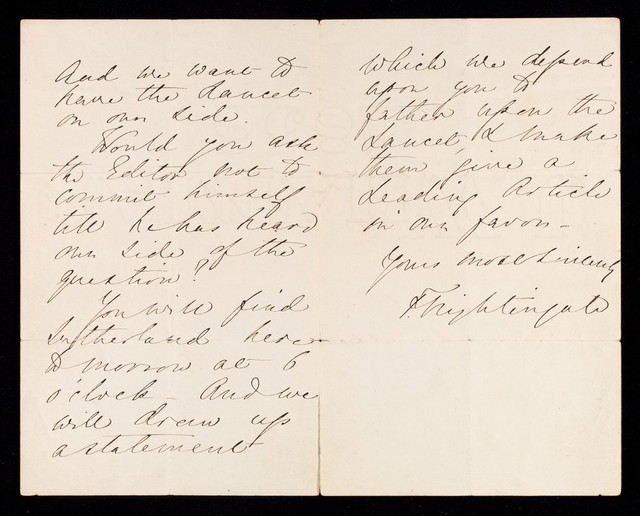 And we want to
have the Lancet
on our side.
Would you ask
the Editor not to
commit himself
till he has heard
our side of the
question?
You will find
Sutherland here
to morrow at 6
o'clock - And we
will draw up
a statement
which we depend
upon you to
father upon the
Lancet, & make
them give a
Leading Article
in our favor -
Yours most sincerely
F. Nightingale